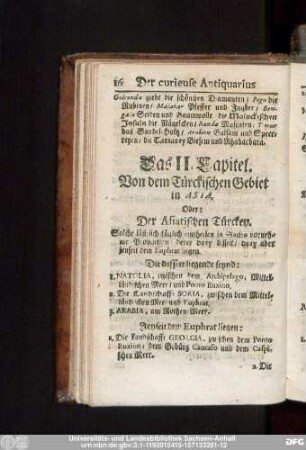 86 Der curieuse Antiquarius
Golconda giebt die schönsten Diamanten; Pegu die
Rubinen; Malabar Pfeffer und Ingber; Ben-
gala Seiden und Baumwolle die Moluckischen
Insuln die Nägelein; Banda Muscaten; Timor
das Sandel-Holtz; Arabien Balsam und Spece-
reyen; die Tartarey Biesem und Rhabarbara.
Das II. Capitel.
Von dem Türckischen Gebiet
in ASIA,
Oder:
Der Asiatischen Türckey.
Solche läst sich füglich eintheilen in Sechs vorneh-
me Provintzen; derer drey disseit, drey aber
jenseit dem Euphrat liegen.
Die disseits liegende seynd:
1. NATOLIA, zwischen dem Archipelago, Mittel-
ländischen Meer, und Ponto Euxino.
2. Die Landschafft SORIA, zwischen dem Mittel-
ländischen Meer und Euphrat.
3. ARABIA, am Rothen-Meer.
Jenseit dem Euphrat liegen:
1. Die Landschafft GEORGIA, zwischen dem Ponto
Euxino; dem Gebürg Caucaso und dem Caspi-
schen Meer.
2. Die
Universitäts- und Landesbibliothek Sachsen-Anhalt
urn:nbn:de:gbv:3:1-1192015415-157133281-12
DFG